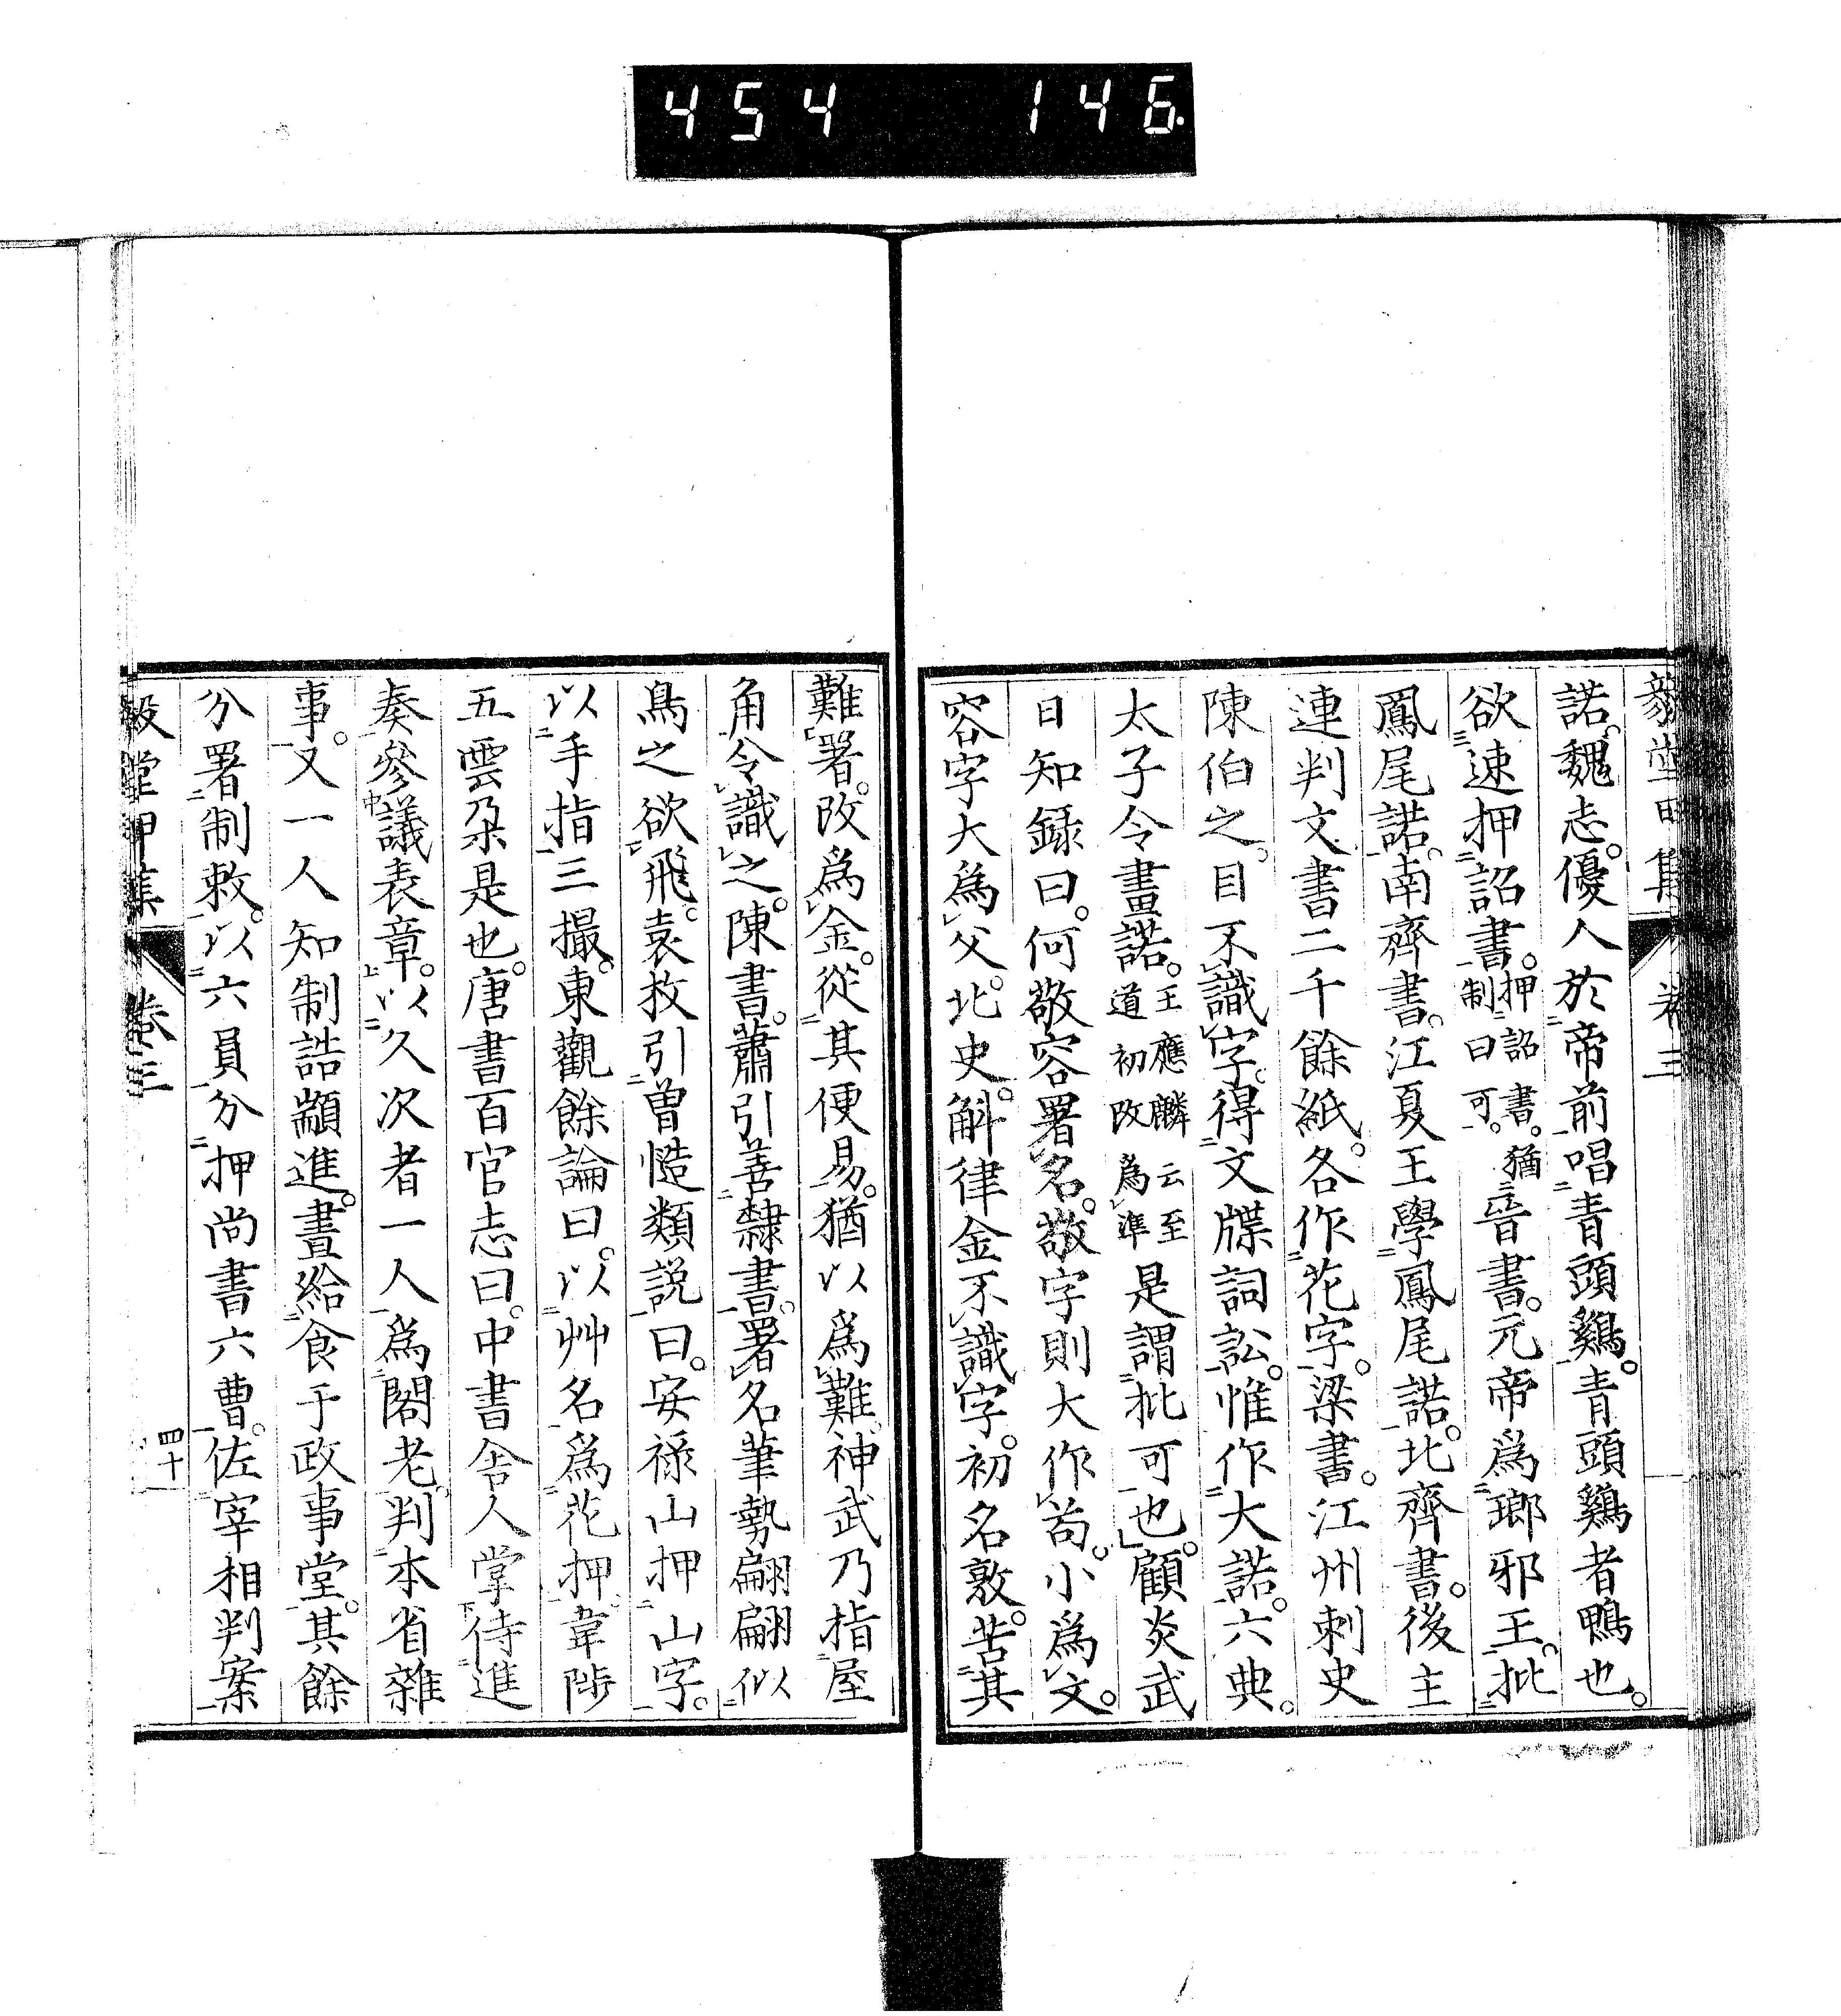 454 146.
毅堂甲集 卷三
諾。魏志。優人於帝前唱青頭鷄。青頭鷄者鴨也。
欲速押詔書。押詔書。猶制曰可。晉書。元帝爲瑯邪王。批
鳳尾諾。南齊書。江夏王學鳳尾諾。北齊書。後主
連判文書二千餘紙。各作花字。梁書。江州刺史
陳伯之。目不識字。得文牒詞訟。惟作大諾。六典。
太子令畫諾。王應麟云至道初改爲準是謂批可也。顧炎武
日知録曰。何敬容署名。敬字則大作苟。小爲文。
容字大爲父。北史。斛律金不識字。初名敦。苦其
難署。改爲金。從其便易。猶以爲難。神武乃指屋
角令識之。陳書。蕭引善隸書。署名筆勢翩翩似
鳥之欲飛。袁枚引曾慥類説曰。安祿山押山字。
以手指三撮。東觀餘論曰。以艸名爲花押韋陟
五雲朶是也。唐書百官志曰。中書舍人掌侍進
奏參議表章。以久次者一人爲閣老判本省雜
事。又一人知制誥顓進。畫給食于政事堂。其餘
分署制敕。以六員分押尚書六曹。佐宰相判案
毅堂甲集 卷三 四十